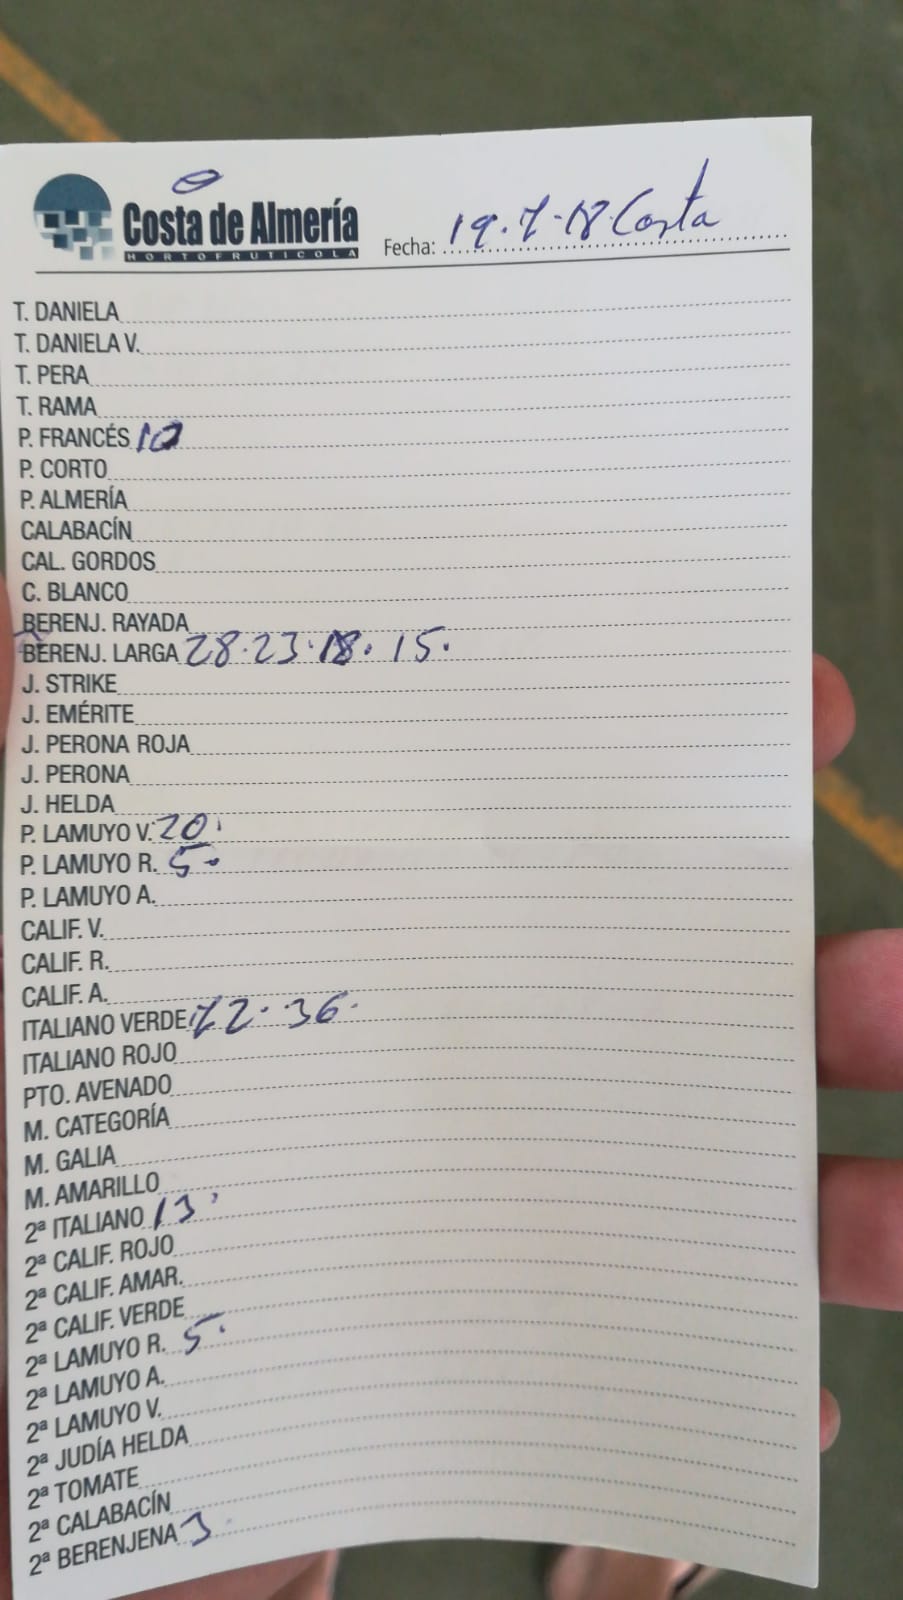 Costa de Almería
HORTOFRUTICOLA
Fecha: 19.7.18 Costa
T. DANIELA
T. DANIELA V.
T. PERA
T. RAMA
P. FRANCÉS 10
P. CORTO
P. ALMERÍA
CALABACÍN
CAL. GORDOS
C. BLANCO
BERENJ. RAYADA
BERENJ. LARGA 28.23.18.15.
J. STRIKE
J. EMÉRITE
J. PERONA ROJA
J. PERONA
J. HELDA
P. LAMUYO V. 20.
P. LAMUYO R. 5.
P. LAMUYO A.
CALIF. V.
CALIF. R.
CALIF. A.
ITALIANO VERDE 36.
ITALIANO ROJO
PTO. AVENADO
M. CATEGORÍA
M. GALIA
M. AMARILLO
2ª ITALIANO 13.
2ª CALIF. ROJO
2ª CALIF. AMAR.
2ª CALIF. VERDE
2ª LAMUYO R. 5.
2ª LAMUYO A.
2ª LAMUYO V.
2ª JUDÍA HELDA
2ª TOMATE
2ª CALABACÍN
2ª BERENJENA 3.